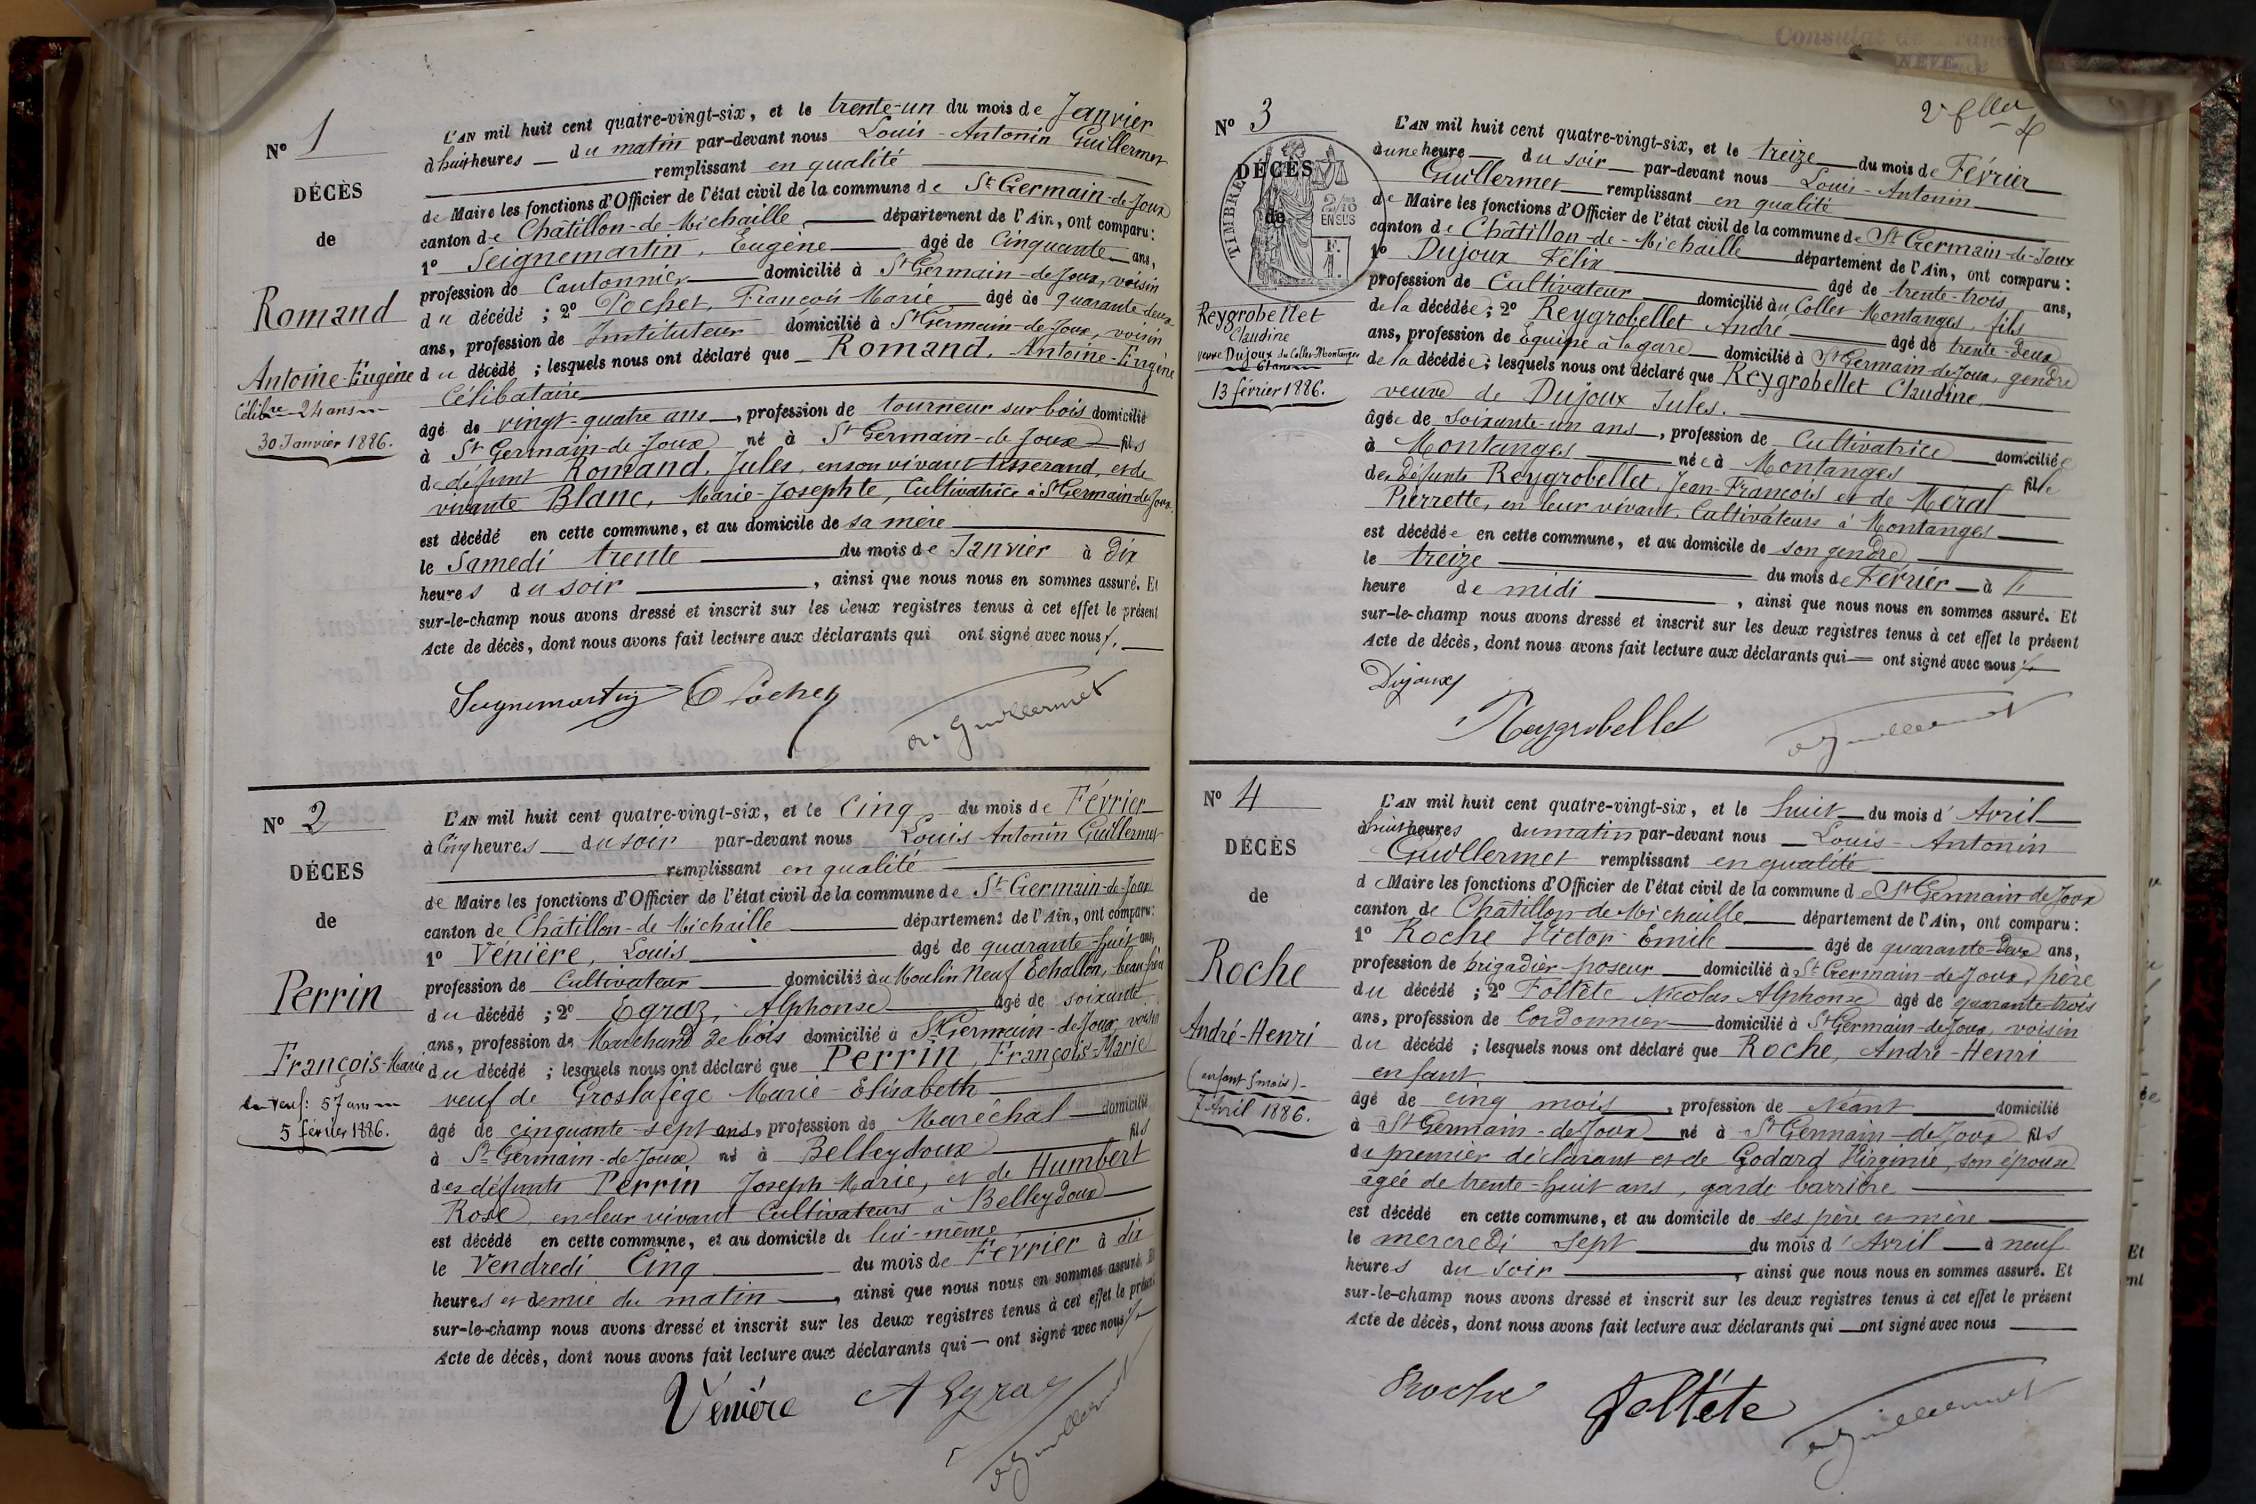 N° 1
DÉCÈS
de
Romand
Antoine-Eugène
Célibre 24 ans
30 Janvier 1886.
L'AN mil huit cent quatre-vingt-six, et le trente-un du mois de Janvier
à huit heures du matin par-devant nous Louis-Antonin Guillermet
remplissant en qualité
de Maire les fonctions d'Officier de l'état civil de la commune de St Germain-de-Joux
canton de Châtillon-de-Michaille département de l'Ain, ont comparu:
1° Seignemartin, Eugène âgé de Cinquante ans,
profession de Cantonnier domicilié à St Germain-de-Joux, voisin
du décédé ; 2° Pochet, François Marie âgé de quarante-deux
ans, profession de Instituteur domicilié à St Germain-de-Joux, voisin
du décédé ; lesquels nous ont déclaré que Romand, Antoine-Eugène
Célibataire
âgé de vingt-quatre ans, profession de tourneur sur bois domicilié
à St Germain-de-Joux né à St Germain-de-Joux fils
de défunt Romand, Jules, en son vivant tisserand, et de
vivante Blanc, Marie-Josephte, Cultivatrice à St Germain-de-Joux.
est décédé en cette commune, et au domicile de sa mère
le Samedi trente du mois de Janvier à Dix
heures du soir, ainsi que nous nous en sommes assuré. Et
sur-le-champ nous avons dressé et inscrit sur les deux registres tenus à cet effet le présent
Acte de décès, dont nous avons fait lecture aux déclarants qui ont signé avec nous.
Seignemartin Pochet
A. Guillermet
N° 2
DÉCES
de
Perrin
François-Marie
veuf: 57 ans
5 février 1886.
L'AN mil huit cent quatre-vingt-six, et le Cinq du mois de Février
à Cinq heures du soir par-devant nous Louis-Antonin Guillermet
remplissant en qualité
de Maire les fonctions d'Officier de l'état civil de la commune de St Germain-de-Joux
canton de Châtillon-de-Michaille département de l'Ain, ont comparu:
1° Vénière, Louis âgé de quarante-huit ans,
profession de Cultivateur domicilié au Moulin Neuf Echallon, beau-frère
du décédé ; 2° Egraz, Alphonse âgé de soixante
ans, profession de Marchand de bois domicilié à St Germain-de-Joux, voisin
du décédé ; lesquels nous ont déclaré que Perrin, François-Marie
veuf de Groslafège Marie-Elisabeth
âgé de cinquante-sept ans, profession de Maréchal domicilié
à St Germain-de-Joux né à Belleydoux fils
des défunts Perrin Joseph Marie, et de Humbert
Rose, en leur vivant Cultivateurs à Belleydoux
est décédé en cette commune, et au domicile de lui-même
le Vendredi Cinq du mois de Février à dix
heures et demie du matin, ainsi que nous nous en sommes assuré. Et
sur-le-champ nous avons dressé et inscrit sur les deux registres tenus à cet effet le présent
Acte de décès, dont nous avons fait lecture aux déclarants qui ont signé avec nous
Vénière A Egraz
A. Guillermet
Consulat de France
2e flle
N° 3
DÉCÈS
de
TIMBRE
2/10 EN SUS
Reygrobellet
Claudine
veuve Dujoux du Collet-Montanges
61 ans
13 février 1886.
L'AN mil huit cent quatre-vingt-six, et le treize du mois de Février
à une heure du soir par-devant nous Louis-Antonin
Guillermet remplissant en qualité
de Maire les fonctions d'Officier de l'état civil de la commune de St Germain-de-Joux
canton de Châtillon-de-Michaille département de l'Ain, ont comparu :
1° Dujoux Félix âgé de trente-trois ans,
profession de Cultivateur domicilié au Collet Montanges, fils
de la décédée ; 2° Reygrobellet André âgé de trente-deux
ans, profession de Equipe à la gare domicilié à St Germain-de-Joux, gendre
de la décédée ; lesquels nous ont déclaré que Reygrobellet Claudine
veuve de Dujoux Jules.
âgée de soixante-un ans, profession de Cultivatrice domiciliée
à Montanges née à Montanges fille
des défunts Reygrobellet, Jean-François et de Méral
Pierrette, en leur vivant, Cultivateurs à Montanges
est décédée en cette commune, et au domicile de son gendre
le treize du mois de Février à
heure de midi, ainsi que nous nous en sommes assuré. Et
sur-le-champ nous avons dressé et inscrit sur les deux registres tenus à cet effet le présent
Acte de décès, dont nous avons fait lecture aux déclarants qui ont signé avec nous
Dujoux
Reygrobellet
A. Guillermet
N° 4
DÉCÈS
de
Roche
André-Henri
(enfant 5 mois)
7 Avril 1886.
L'AN mil huit cent quatre-vingt-six, et le huit du mois d'Avril
à huit heures du matin par-devant nous Louis-Antonin
Guillermet remplissant en qualité
de Maire les fonctions d'Officier de l'état civil de la commune de St Germain-de-Joux
canton de Châtillon-de-Michaille département de l'Ain, ont comparu :
1° Roche Victor Emile âgé de quarante-deux ans,
profession de brigadier-poseur domicilié à St Germain-de-Joux, père
du décédé ; 2° Foltête Nicolas Alphonse âgé de quarante-trois
ans, profession de Cordonnier domicilié à St Germain-de-Joux, voisin
du décédé ; lesquels nous ont déclaré que Roche, André-Henri
enfant
âgé de cinq mois, profession de Néant domicilié
à St Germain-de-Joux né à St Germain-de-Joux fils
du premier déclarant et de Godard Virginie, son épouse
âgée de trente-huit ans, garde barrière
est décédé en cette commune, et au domicile de ses père et mère
le mercredi Sept du mois d'Avril à neuf
heures du soir, ainsi que nous nous en sommes assuré. Et
sur-le-champ nous avons dressé et inscrit sur les deux registres tenus à cet effet le présent
Acte de décès, dont nous avons fait lecture aux déclarants qui ont signé avec nous
Roche Foltête
A. Guillermet